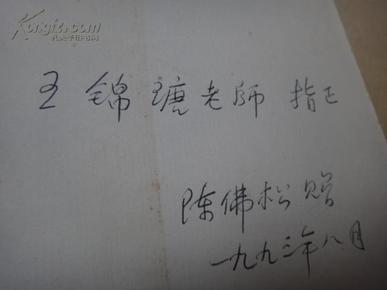 Kongfz.com
孔夫子旧书网
王锦瑭老師 指正
陈佛松 赠
一九九三年八月